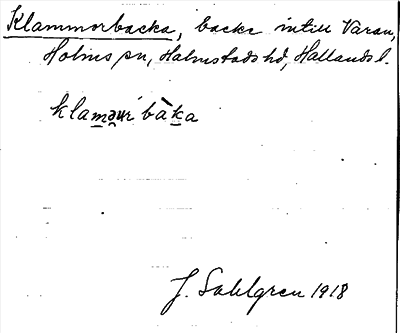 Klammorbacka, backe intill Varan,
Holms sn, Halmstads hd, Hallands l.
klamǝur bàka
J. Sahlgren 1918